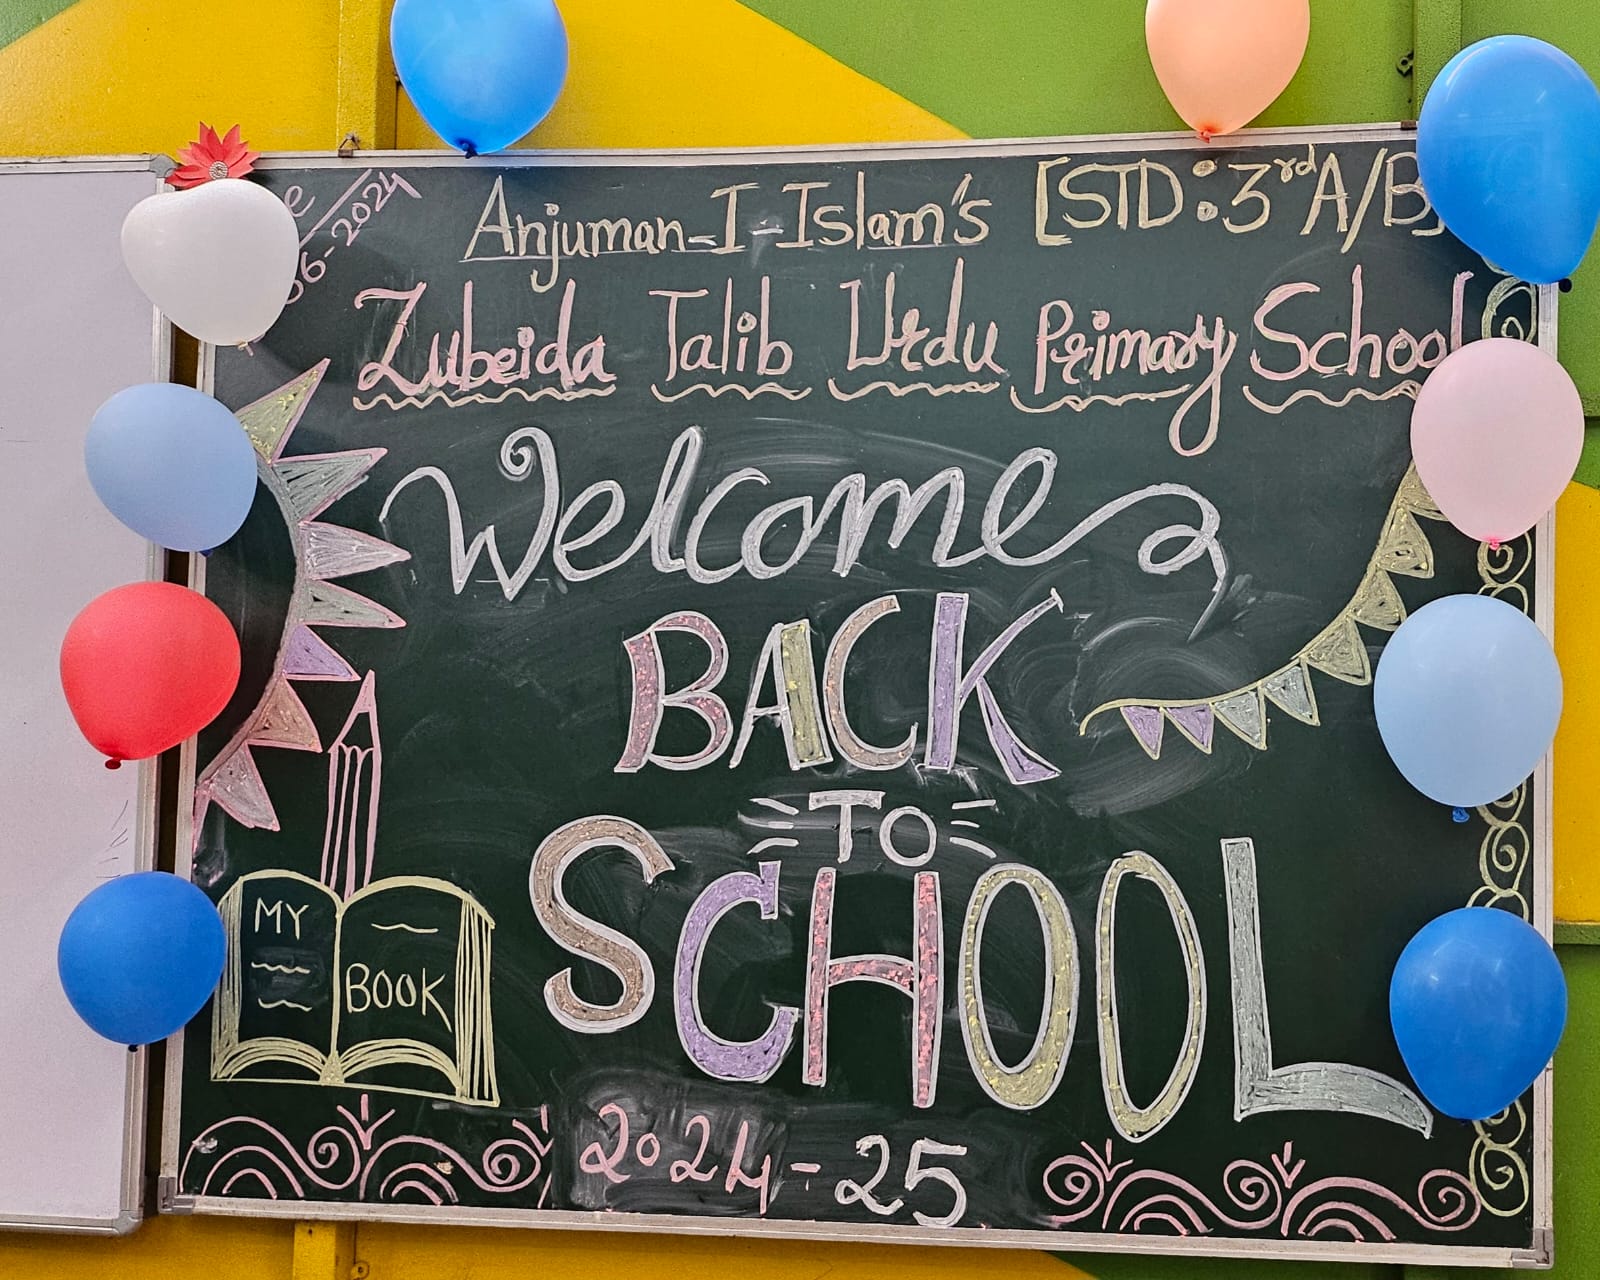 Anjuman-I-Islam's [STD:3rd A/B]
Zubeida Talib Urdu Primary School
Welcome
BACK
TO
SCHOOL
MY
BOOK
2024-25